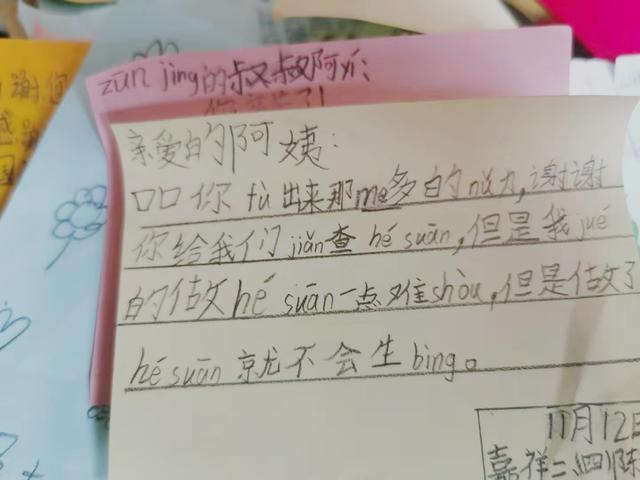 zūn jìng的叔叔阿yí：
亲爱的阿姨：
口口你 fù 出来那me多的nǚ力,谢谢
你给我们jiǎn查 hé suān,但是我jué
的做 hé suān一点难shòu,但是做了
hé suān 就不会生bìng。
11月12日
嘉祥二四陈